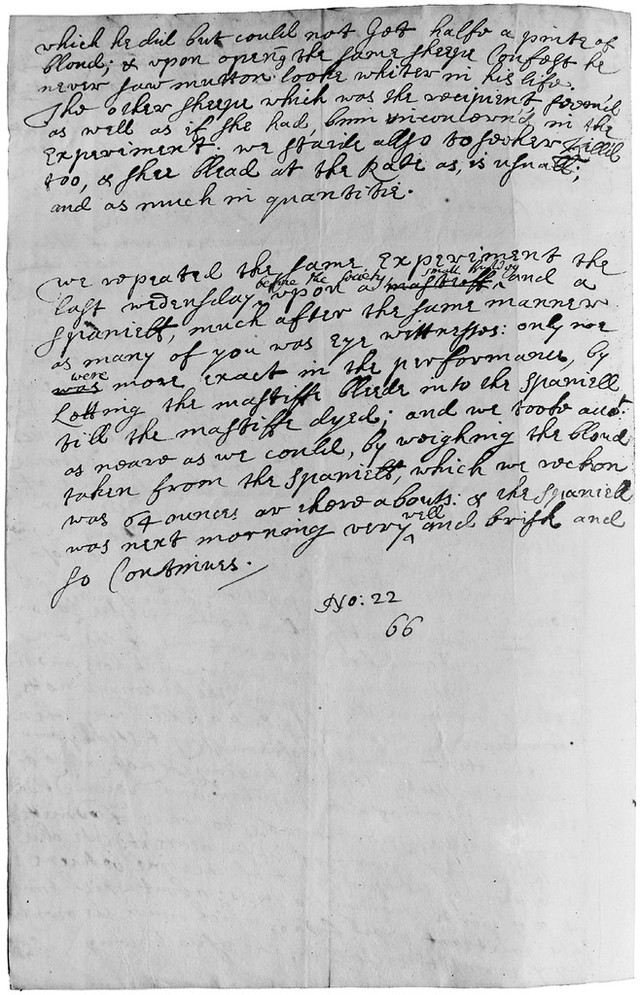 which he did but could not Get halfe a pinte of
bloud; & upon opeñg the same sheepe Confest he
never saw mutton looke whiter in his life.
The other sheepe which was the recipient, seem'd
as well as if she had, binn unconcern'd, in the
Experiment. we stai'de allso to see her kill'd
too, & shee blead at the Rate as, is usuall;
and as much in quantitie.
we repeated the same Experiment the
before the society small bulldog
last wedensday, upon a mastieff, and a
spaniell, much after the same manner
as many of you was Eye wittnesses: only we
were
was more exact in the performance, by
Letting the mastiffe bleede into the spaniell
till the mastiffe dyed: and we tooke acct:
as neare as we could, by weighing the bloud
taken from the spaniell, which we reckon
was 64 ounces or there abouts: & the spaniell
well
was next morning very and brisk and
so Continues.
No: 22
66